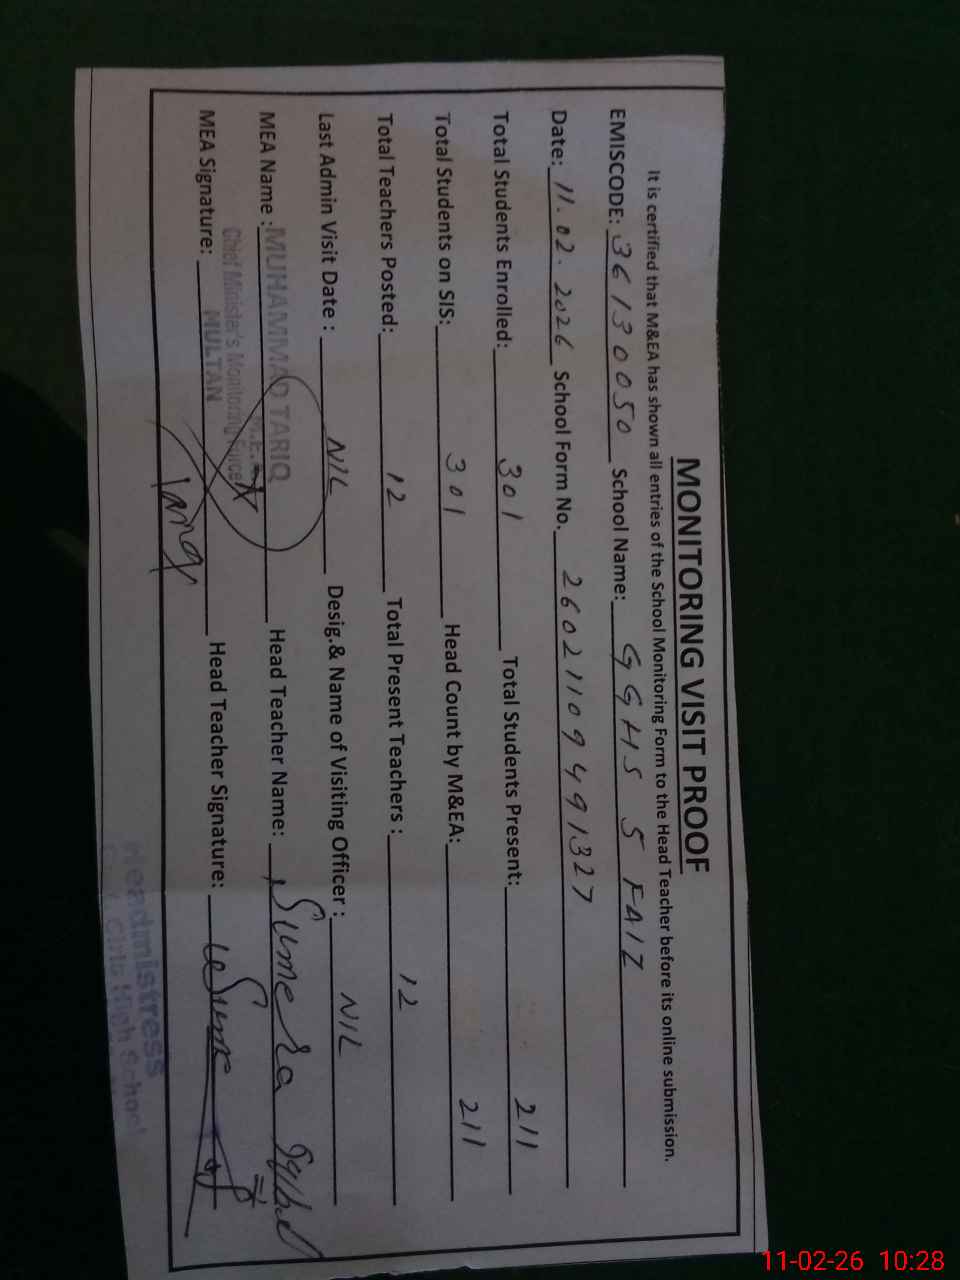 MONITORING VISIT PROOF
It is certified that M&EA has shown all entries of the School Monitoring Form to the Head Teacher before its online submission.
EMISCODE: 36130050 School Name: GGHS 5 FAIZ
Date: 11.02.2026 School Form No. 2602110949 1327
Total Students Enrolled: 301 Total Students Present: 211
Total Students on SIS: 301 Head Count by M&EA: 211
Total Teachers Posted: 12 Total Present Teachers : 12
Last Admin Visit Date : NIL Desig.& Name of Visiting Officer : NIL
MEA Name : MUHAMMAD TARIQ Head Teacher Name: Sumera
M.E.A
Chief Minister's Monitoring Force
MULTAN
MEA Signature: Tariq Head Teacher Signature:
Headmistress
Girls High School
11-02-26 10:28